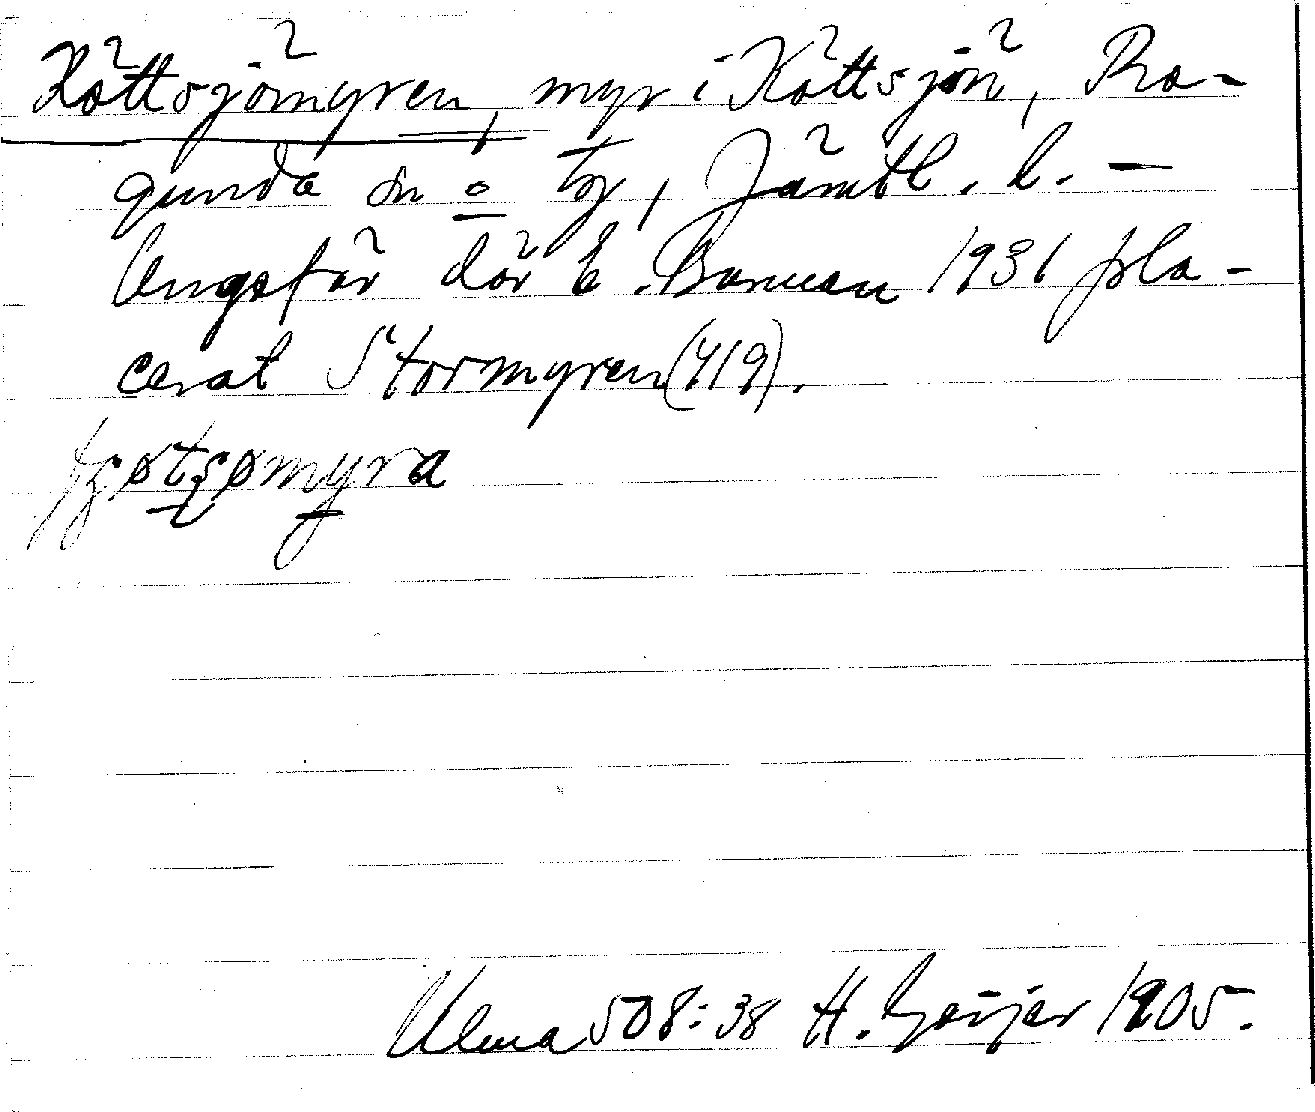 Köttsjömyren, myr i Köttsjön, Ra-
gunda sn o tg, Jämtl. l. –
Ungefär där E. Boman 1931 pla-
cerat Stormyren (719).
søtsømyra
Ulma 508:38 H. Geijer 1905.